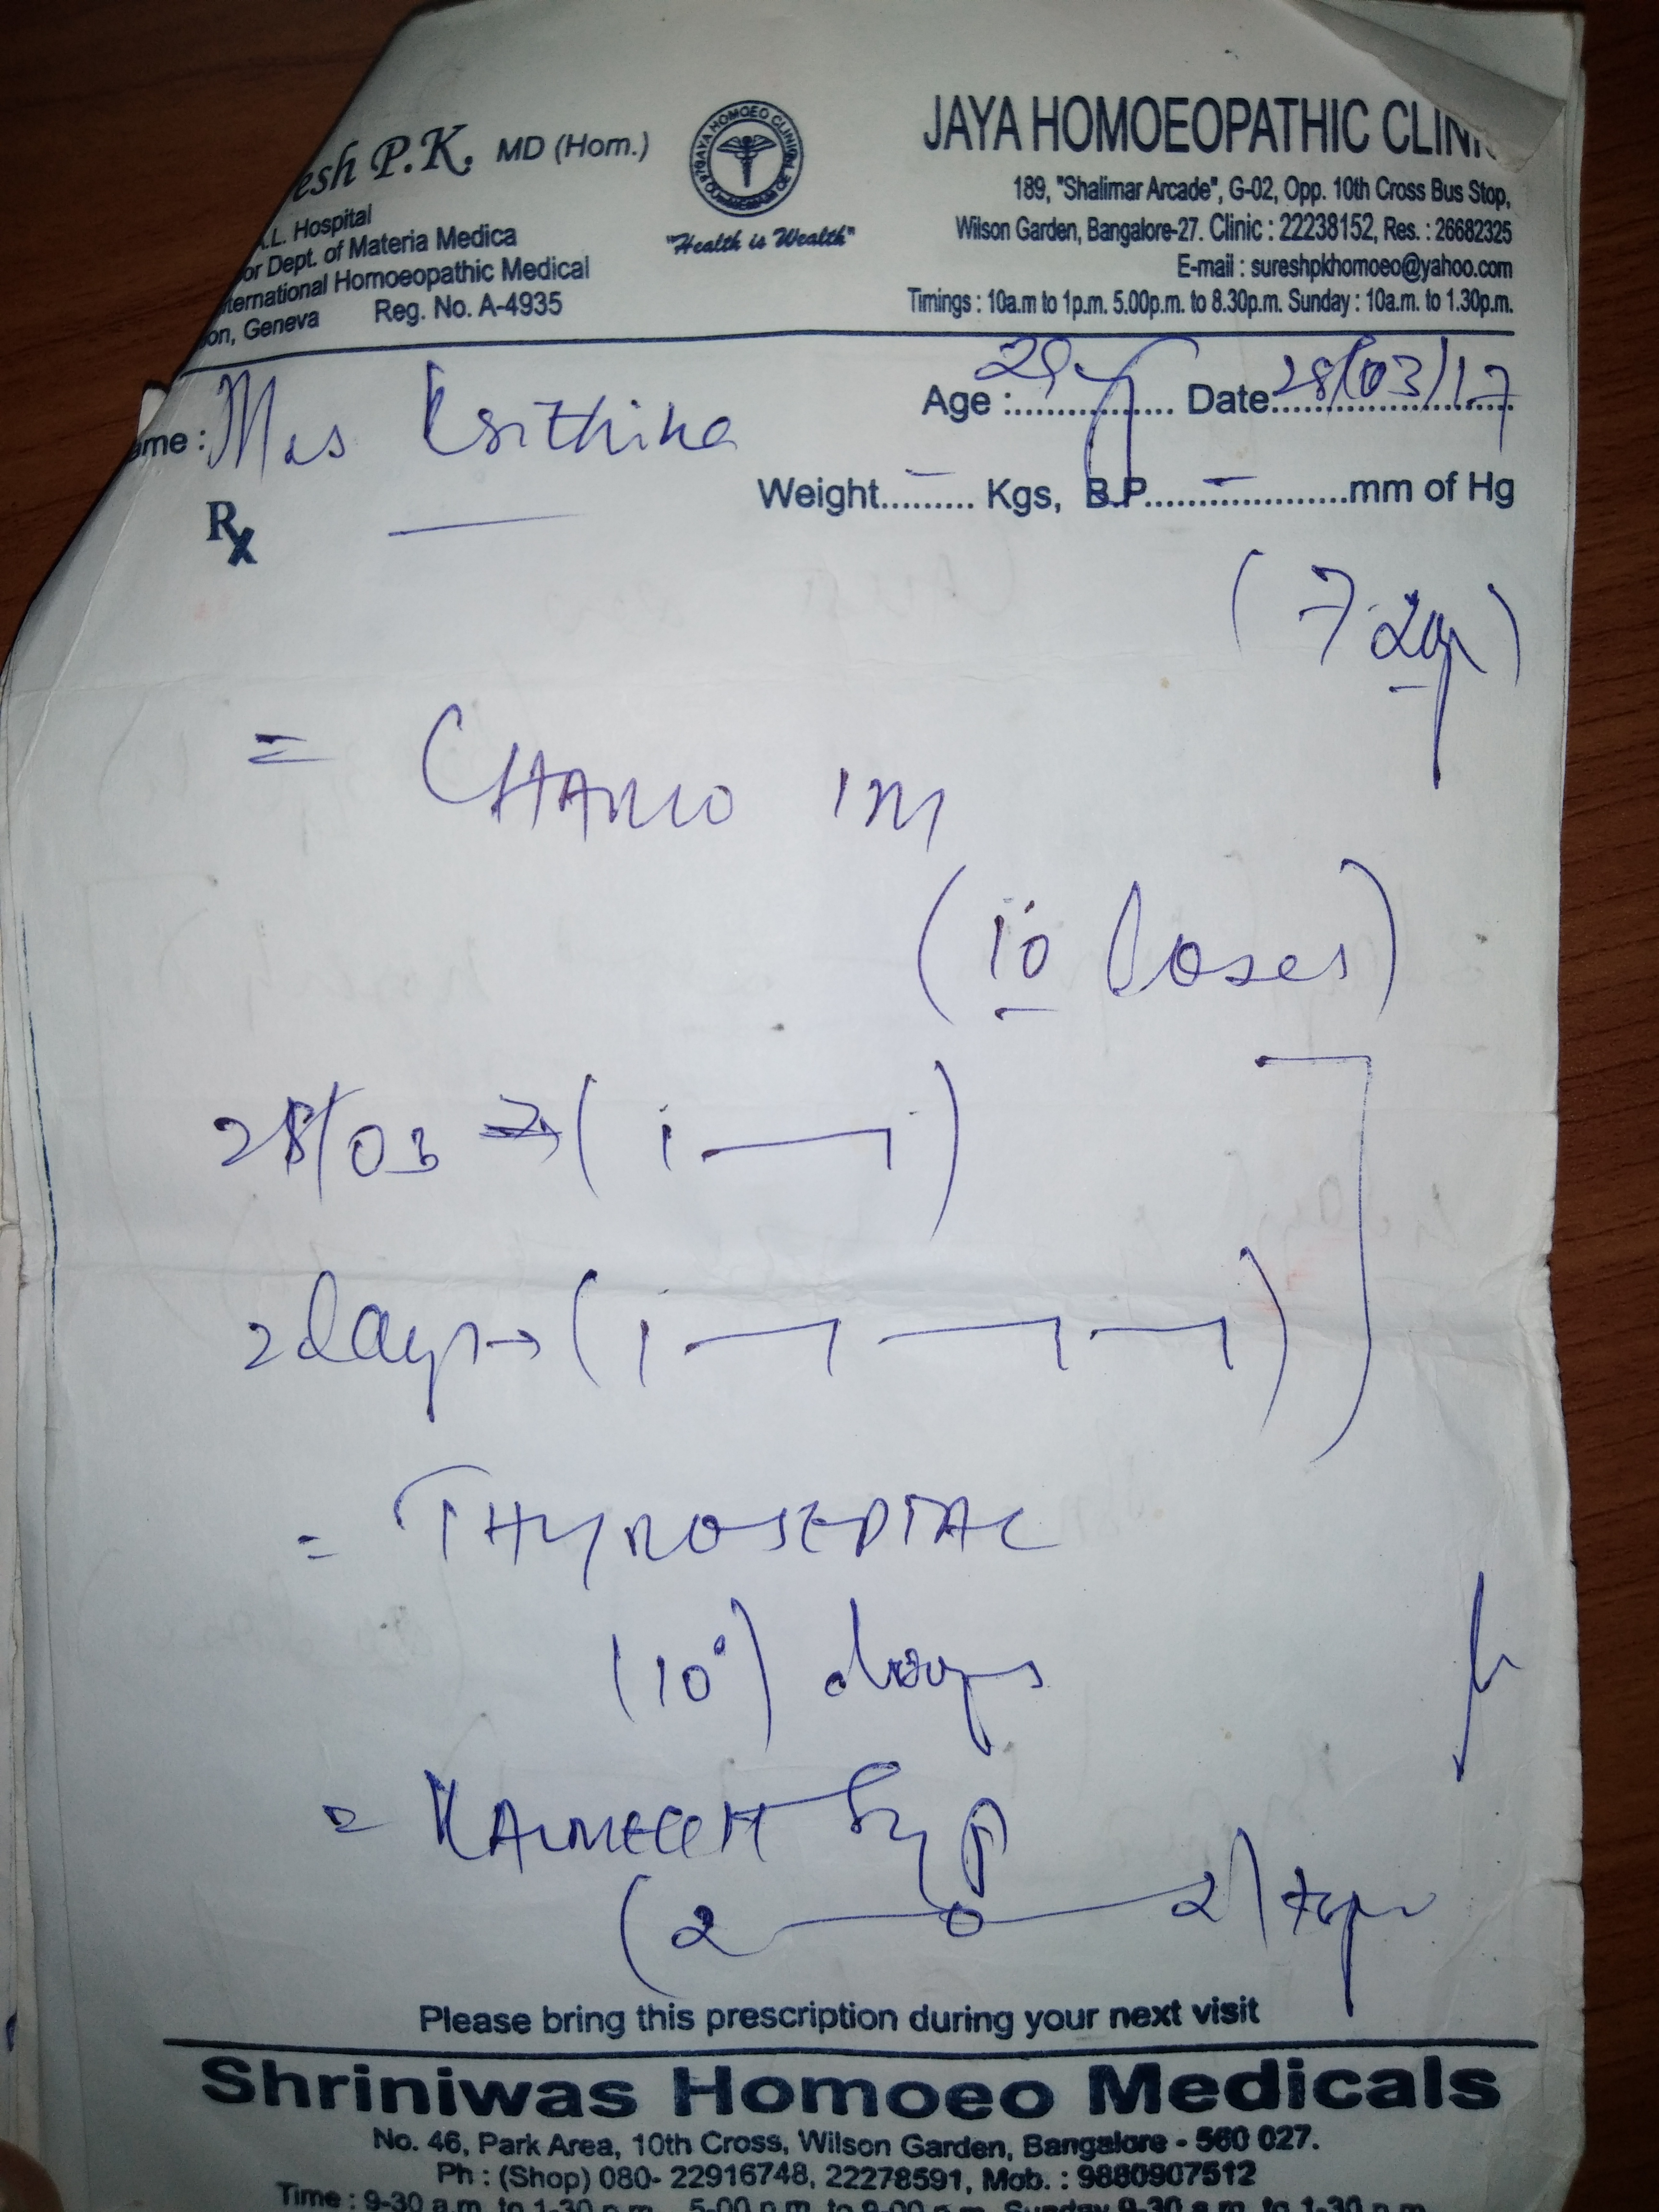 esh P.K. MD (Hom.)
A.L. Hospital
or Dept. of Materia Medica
ternational Homoeopathic Medical
on, Geneva Reg. No. A-4935
JAYA HOMOEO CLINIC
"Health is Wealth"
JAYA HOMOEOPATHIC CLINIC
189, "Shalimar Arcade", G-02, Opp. 10th Cross Bus Stop,
Wilson Garden, Bangalore-27. Clinic : 22238152, Res. : 26682325
E-mail : sureshpkhomoeo@yahoo.com
Timings : 10a.m to 1p.m. 5.00p.m. to 8.30p.m. Sunday : 10a.m. to 1.30p.m.
Age :................ Date 28/03/17
ame : Mrs Krithika
Weight......... – Kgs, B.P. – mm of Hg
Rx
= CHAMO 1M
(10 Doses)
28/03 → (1 — 1)
2 days → (1 — 1 — 1 — 1)
= THYROSEDTAL
(10°) drops
= KALMEGH Syp
(2 — 0 — 2)
Please bring this prescription during your next visit
Shriniwas Homoeo Medicals
No. 46, Park Area, 10th Cross, Wilson Garden, Bangalore - 560 027.
Ph : (Shop) 080- 22916748, 22278591, Mob. : 9880907512
Time : 9-30 a.m. to 1-30 p.m. 5-00 p.m. to 9-00 p.m. Sunday 9-30 a.m. to 1-30 p.m.